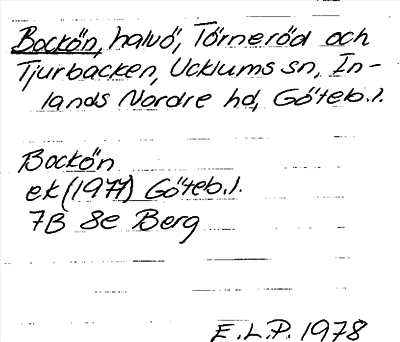 Bockön, halvö, Törneröd och
Tjurbacken, Ucklums sn, In-
lands Nordre hd, Göteb.l.
Bockön
ek (1977) Göteb.l.
7B 8e Berg
E.L.P. 1978